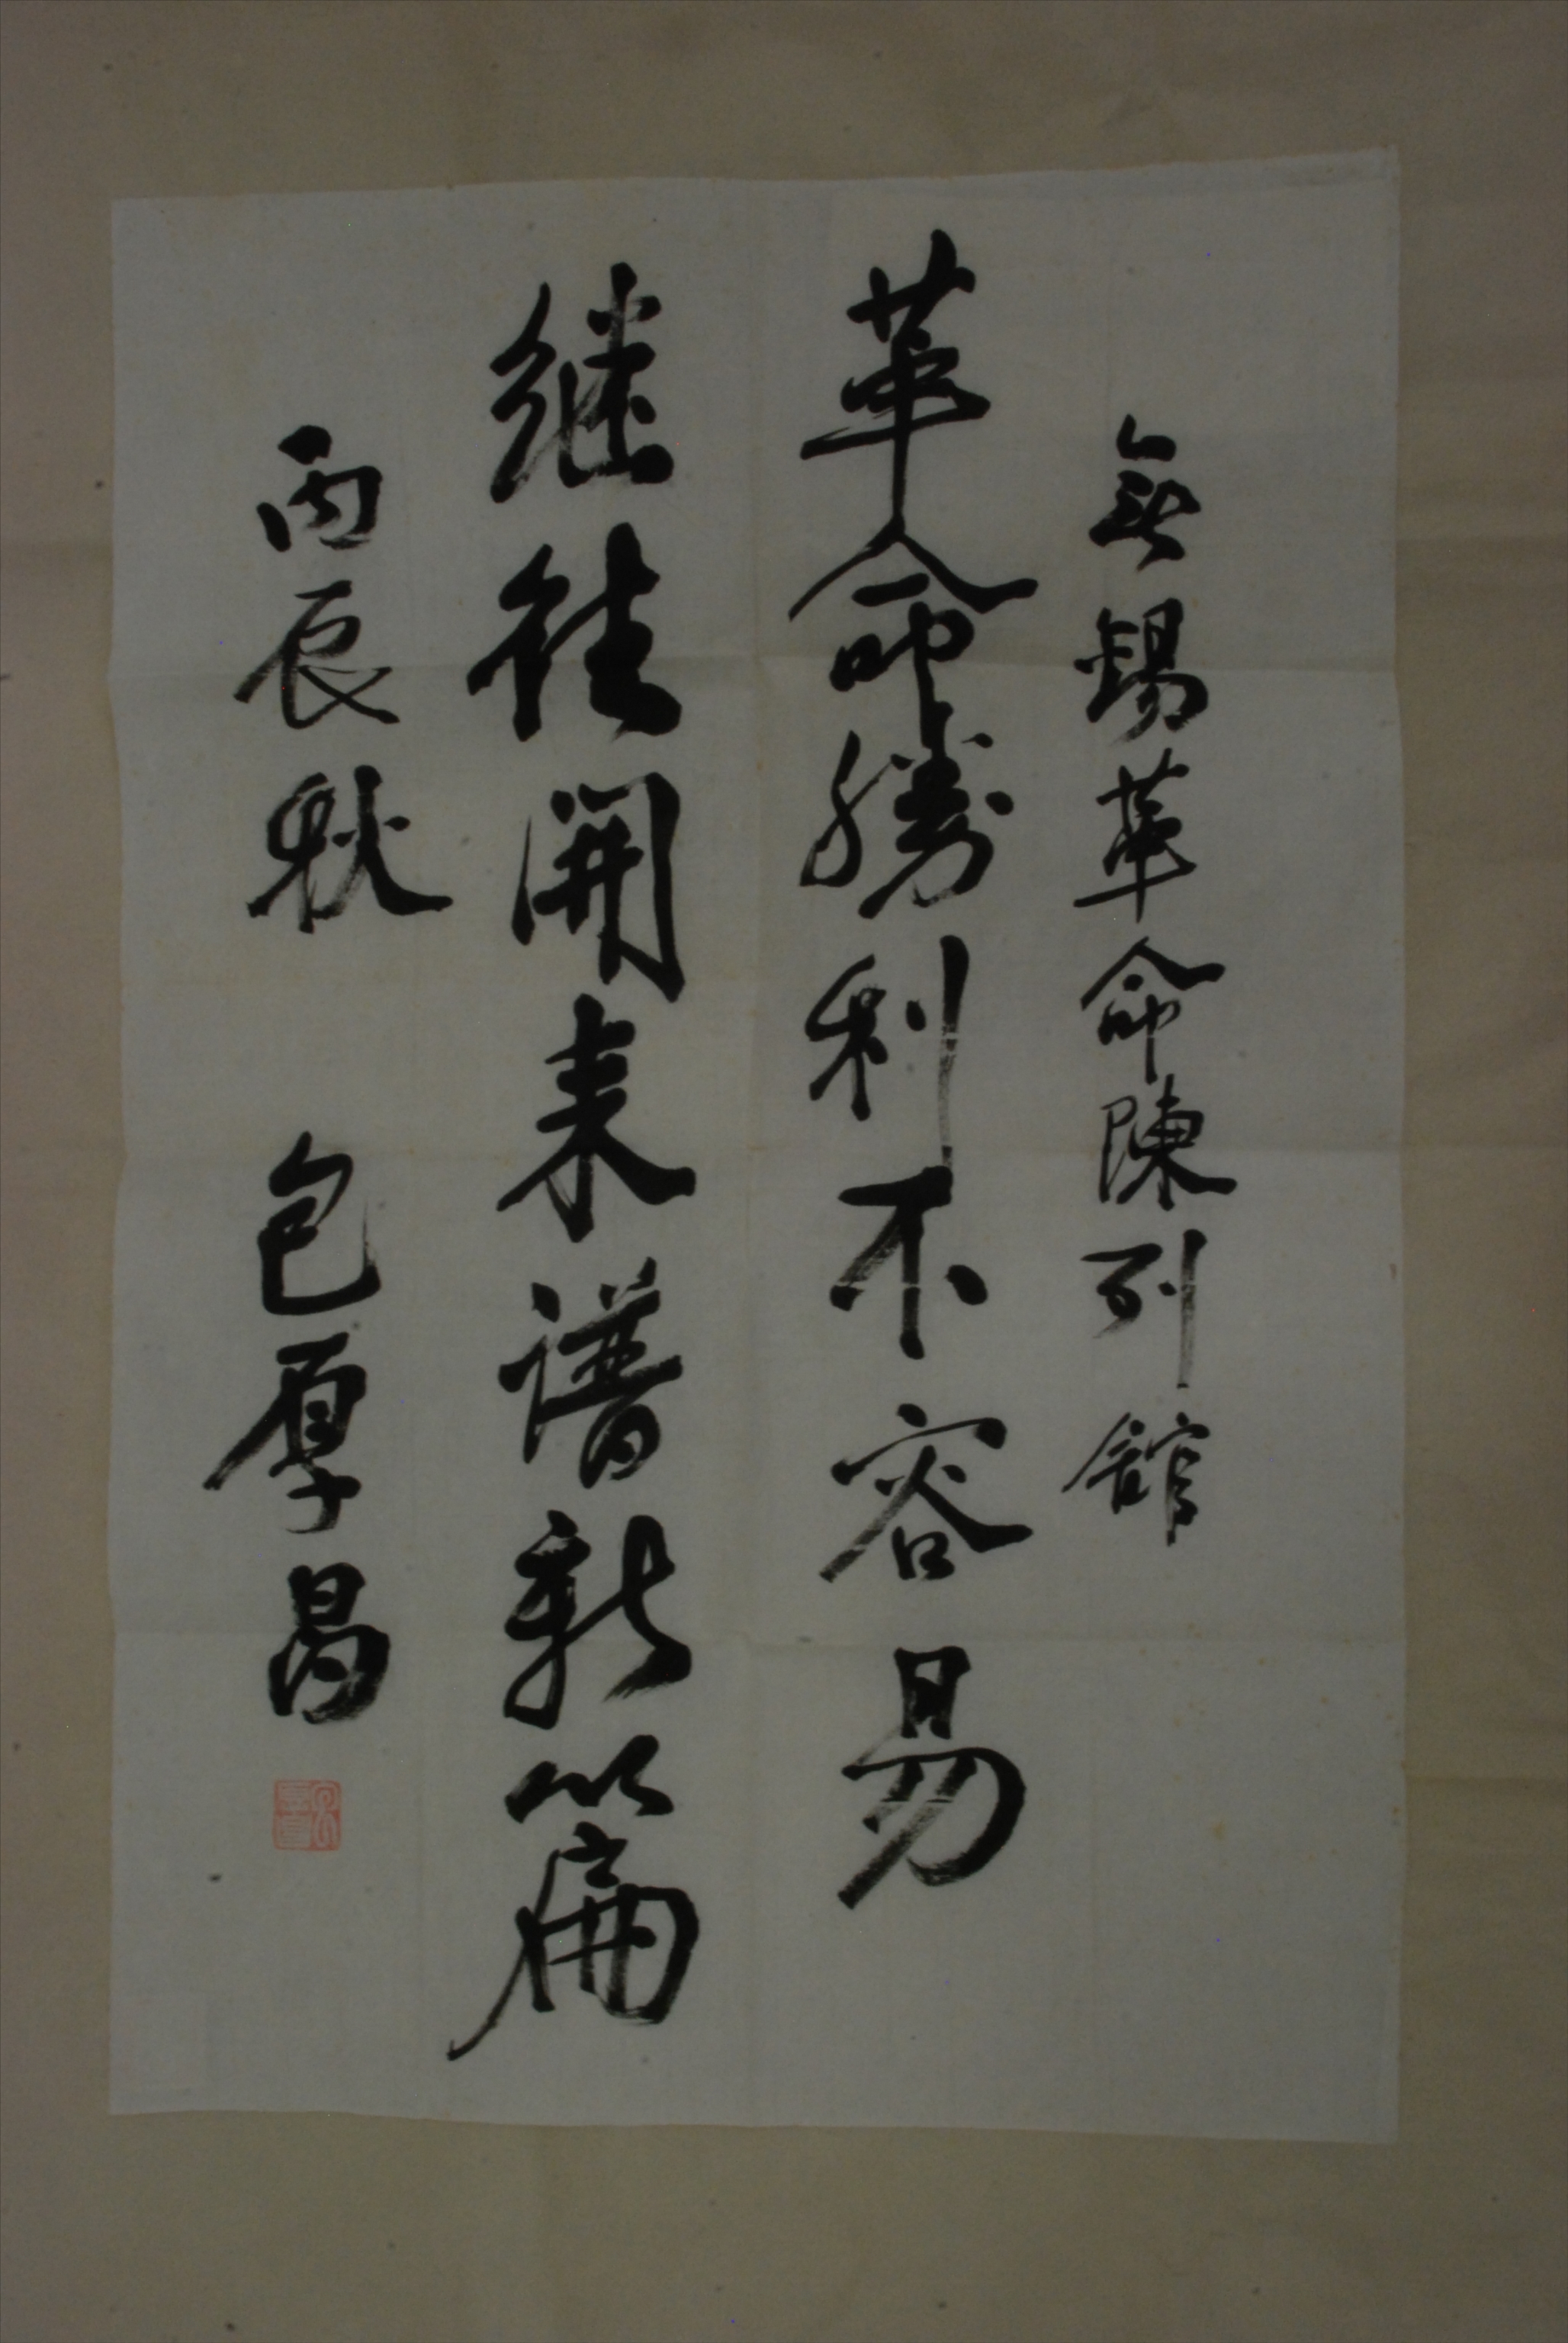 无錫革命陳列舘
革命勝利不容易
继往開来谱新篇
丙辰秋 包厚昌